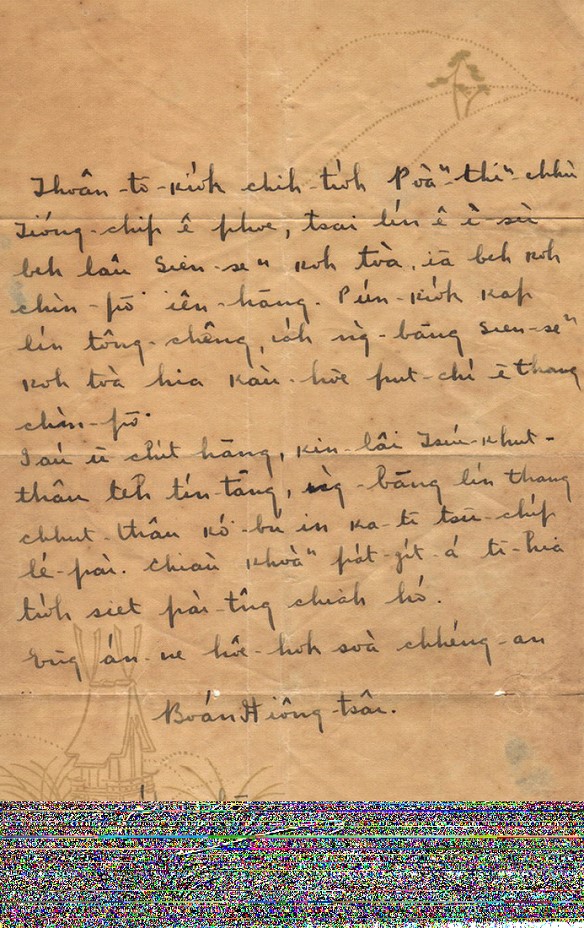 Thoân-tō-kiók chih-tióh Pòaⁿ-thiⁿ-chhù
Tióng-chip ê phoe, tsai lín ê ì-sù
beh lâu Sien-seⁿ koh tòa, iā beh koh
chìn-pō͘ iên-hāng. Pún-kiók kap
lín tông-chêng, iáh ǹg-bāng Sien-seⁿ
koh tòa hia kàu-hòe put-chí ē thang
chìn-pō͘.
Iáu ū chít hāng, kin-lâi Tsúi-khut-
thâu teh tín-tāng, ǹg-bāng lín thang
chhut-thâu kó͘-bú in ka-tī tsū-chíp
lé-pài. Chiàu khoàⁿ pát-jít-á tī-hia
tióh siet pài-tn̂g chiah hó.
Eng án-ne hôe-hok soà chhéng-an
Boán Hiông-tsâi.